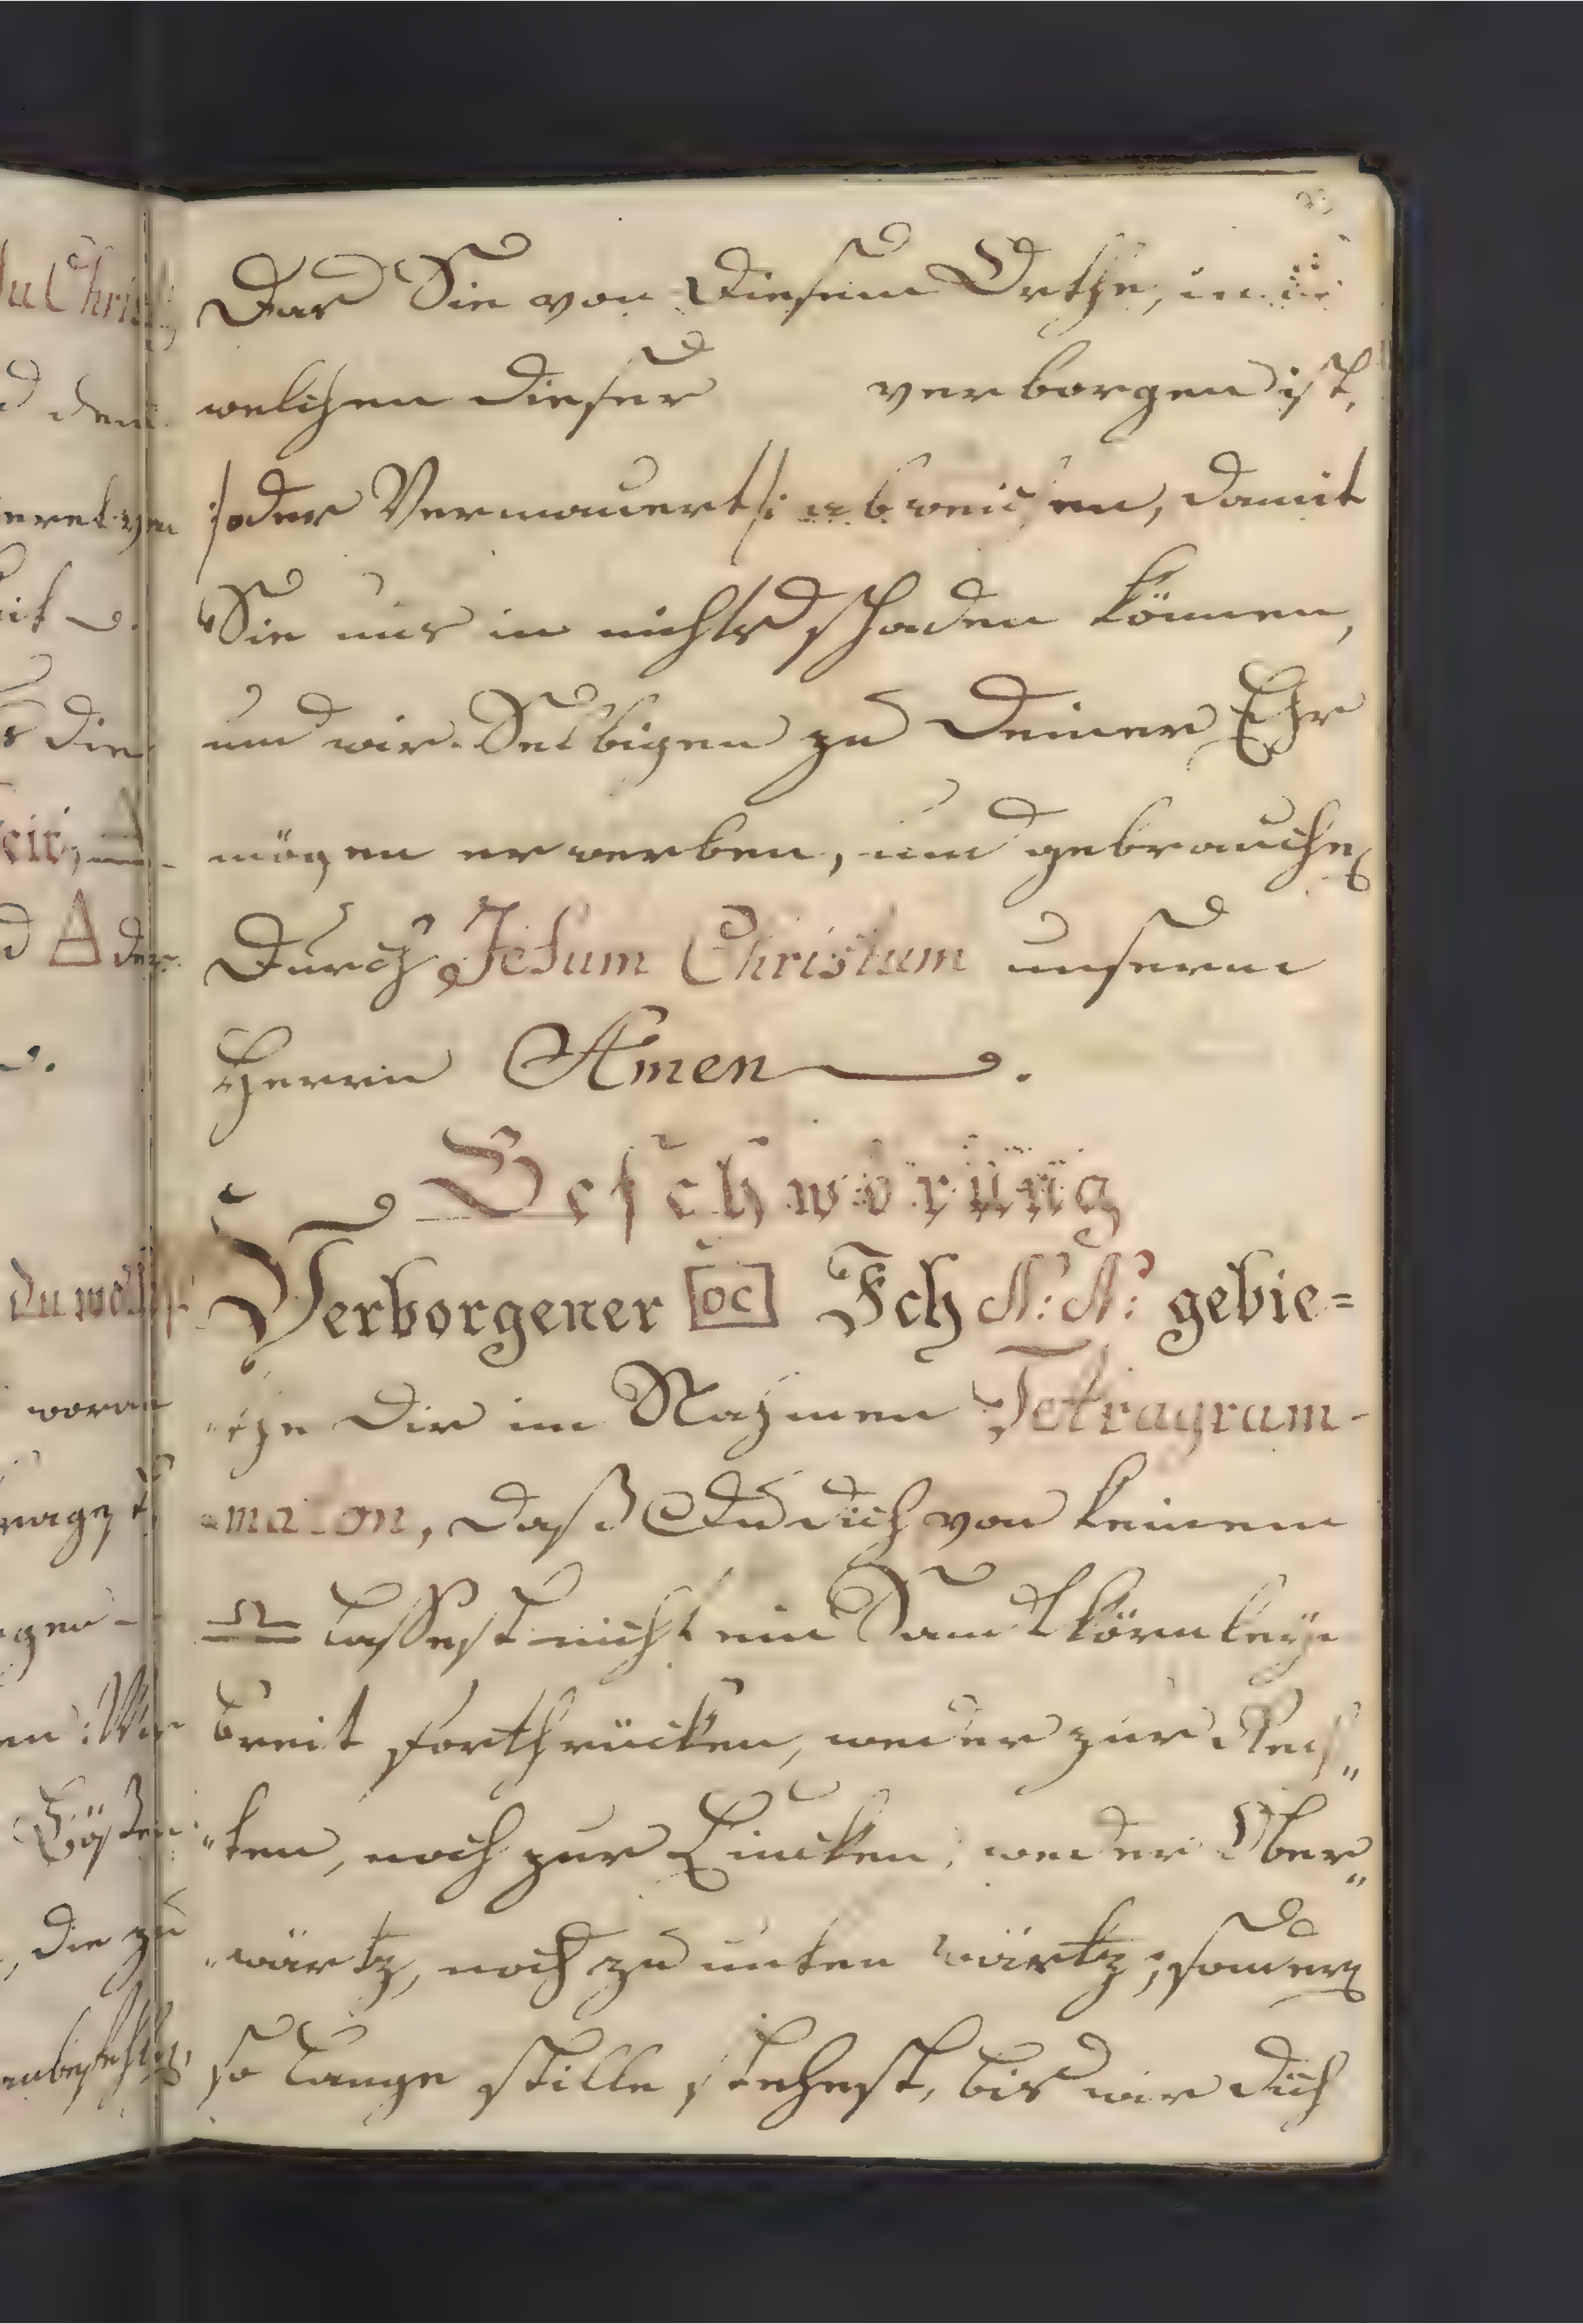 Das Sie von Diesem Orthe, in
welchen dieser verborgen ist,
/:oder Vermauert/: abweichen, damit
Sie uns in nichts schaden können,
und wir Selbigen zu Deiner Ehr
mögen erwerben, und gebrauchen
Durch Jesum Christum unsern
Herrn Amen.
Beschwörung
Verborgener [oc] Ich N: N: gebie=
the dir im Nahmen Tetragram-
maton, daß Du dich von keinem
lassest nicht ein Sandtkörnleyn
breit forthrücken, weder zur Rech„
„ten, noch zur Lincken, weder Ober„
„wärtz, noch zu unten wärtz; sondern
so lange stille stehest, bis wir dich